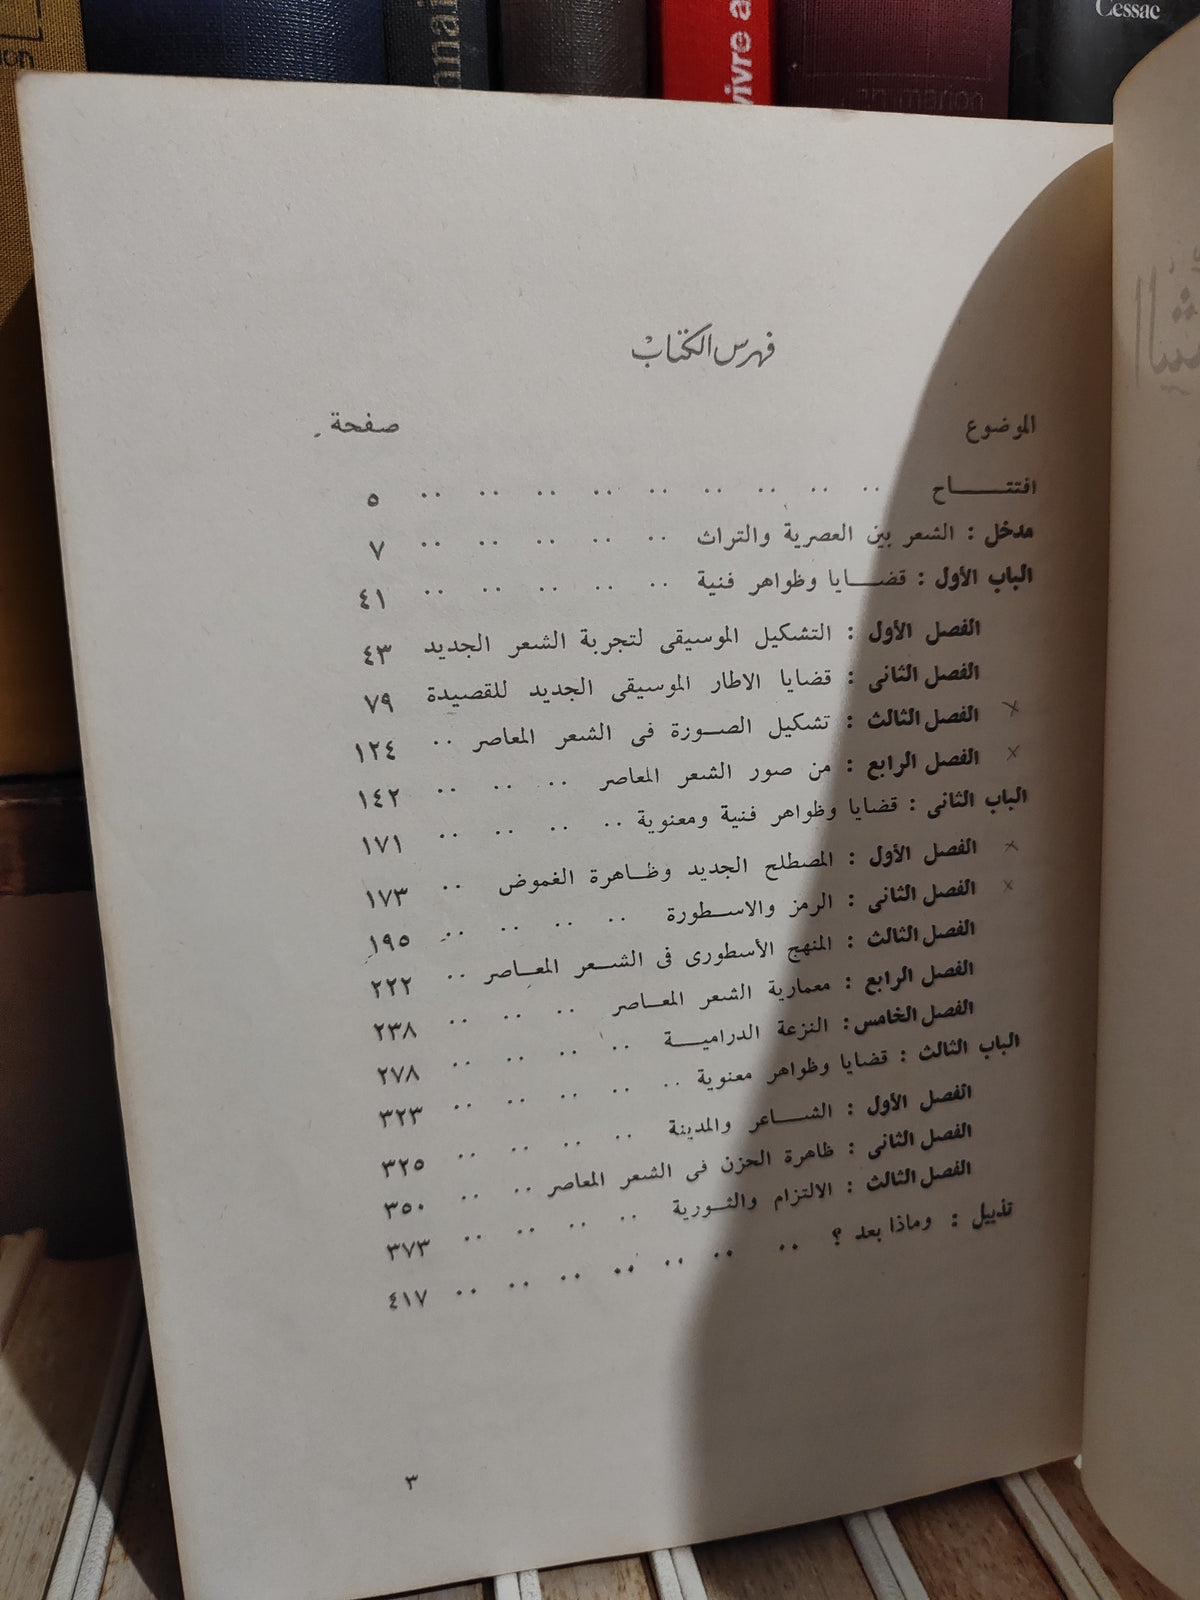 Cessac
vivre a
فهرس الكتاب
الموضوع صفحة
افتتـــــاح .. .. .. .. .. .. .. .. .. ٥
مدخل : الشعر بين العصرية والتراث .. .. .. .. .. ٧
الباب الأول : قضـــايا وظواهر فنية .. .. .. .. .. ٤١
الفصل الأول : التشكيل الموسيقى لتجربة الشعر الجديد ٤٣
الفصل الثانى : قضايا الاطار الموسيقى الجديد للقصيدة ٧٩
الفصل الثالث : تشكيل الصـورة فى الشعر المعاصر .. ١٢٤
الفصل الرابع : من صور الشعر المعاصر .. .. .. ١٤٢
الباب الثانى : قضايا وظواهر فنية ومعنوية .. .. .. .. ١٧١
الفصل الأول : المصطلح الجديد وظـاهرة الغموض .. ١٧٣
الفصل الثانى : الرمز والاسـطورة .. .. .. .. ١٩٥
الفصل الثالث : المنهج الأسطورى فى الشـعر المعـاصر .. ٢٢٢
الفصل الرابع : معمارية الشعر المعـاصر .. .. .. ٢٣٨
الفصل الخامس : النزعة الدراميـــة .. .. .. .. ٢٧٨
الباب الثالث : قضايا وظواهر معنوية .. .. .. .. .. ٣٢٣
الفصل الأول : الشـــاعر والمدينة .. .. .. .. ٣٢٥
الفصل الثانى : ظاهرة الحزن فى الشعر المعاصر .. .. ٣٥٠
الفصل الثالث : الالتزام والثـورية .. .. .. .. ٣٧٣
تذييل : وماذا بعد ؟ .. .. .. .. .. .. .. ٤١٧
٣